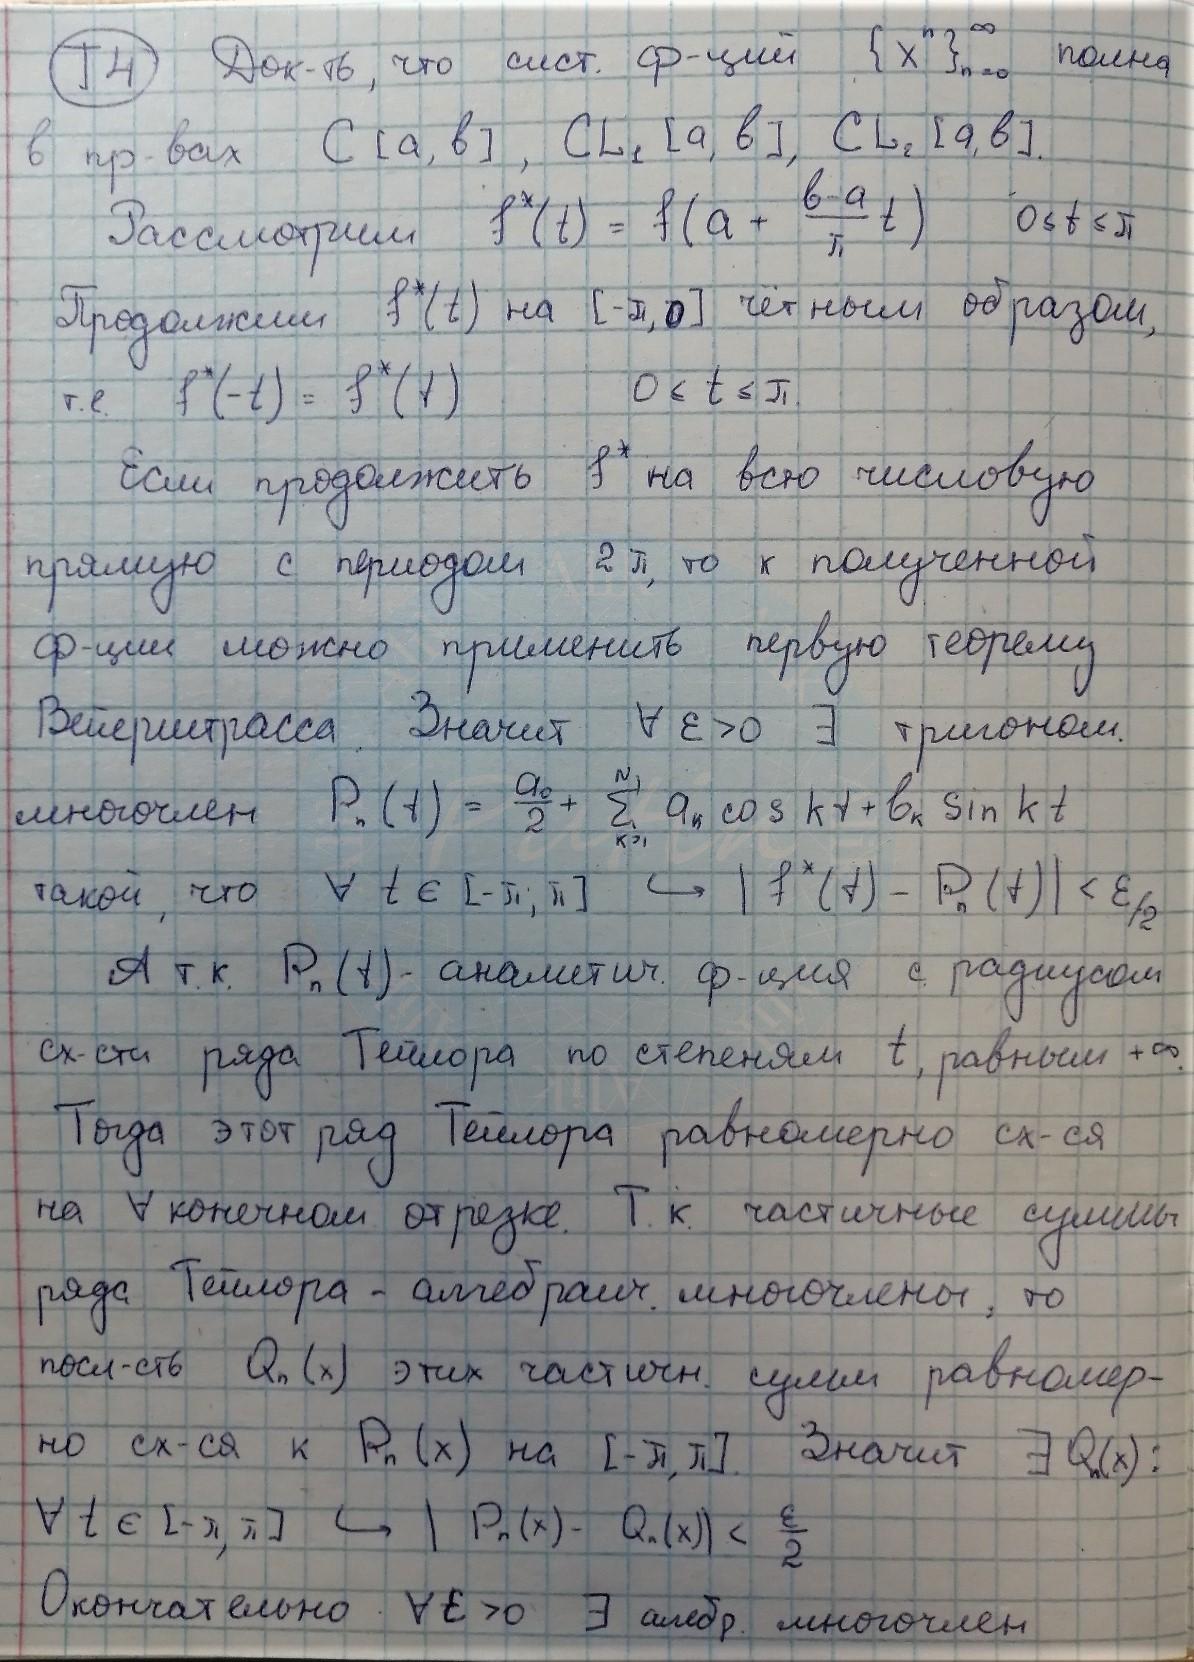 Т4 Док-ть, что сист. ф-ций {xⁿ}_{n=0}^∞ полна
в пр-вах C[a,b], CL₁[a,b], CL₂[a,b].
Рассмотрим f*(t) = f(a + \frac{b-a}{π} t) 0≤t≤π
Продолжим f*(t) на [-π,0] чётным образом,
т.е. f*(-t) = f*(t) 0 ≤ t ≤ π.
Если продолжить f* на всю числовую
прямую с периодом 2π, то к полученной
ф-ции можно применить первую теорему
Вейерштрасса. Значит ∀ ε>0 ∃ тригоном.
многочлен Pₙ(t) = \frac{a₀}{2} + \sum_{k=1}^{N} aₖ cos kt + bₖ sin kt
такой, что ∀ t ∈ [-π; π] ↪ |f*(t) - Pₙ(t)| < ε/2
А т.к. Pₙ(t) - аналитич. ф-ция с радиусом
сх-сти ряда Тейлора по степеням t, равным +∞.
Тогда этот ряд Тейлора равномерно сх-ся
на ∀ конечном отрезке. Т.к. частичные суммы
ряда Тейлора - алгебраич. многочлены, то
посл-сть Qₙ(x) этих частичн. сумм равномер-
но сх-ся к Pₙ(x) на [-π, π]. Значит ∃ Qₙ(x):
∀ t ∈ [-π, π] ↪ | Pₙ(x) - Qₙ(x)| < \frac{ε}{2}
Окончательно ∀ε>0 ∃ алгебр. многочлен